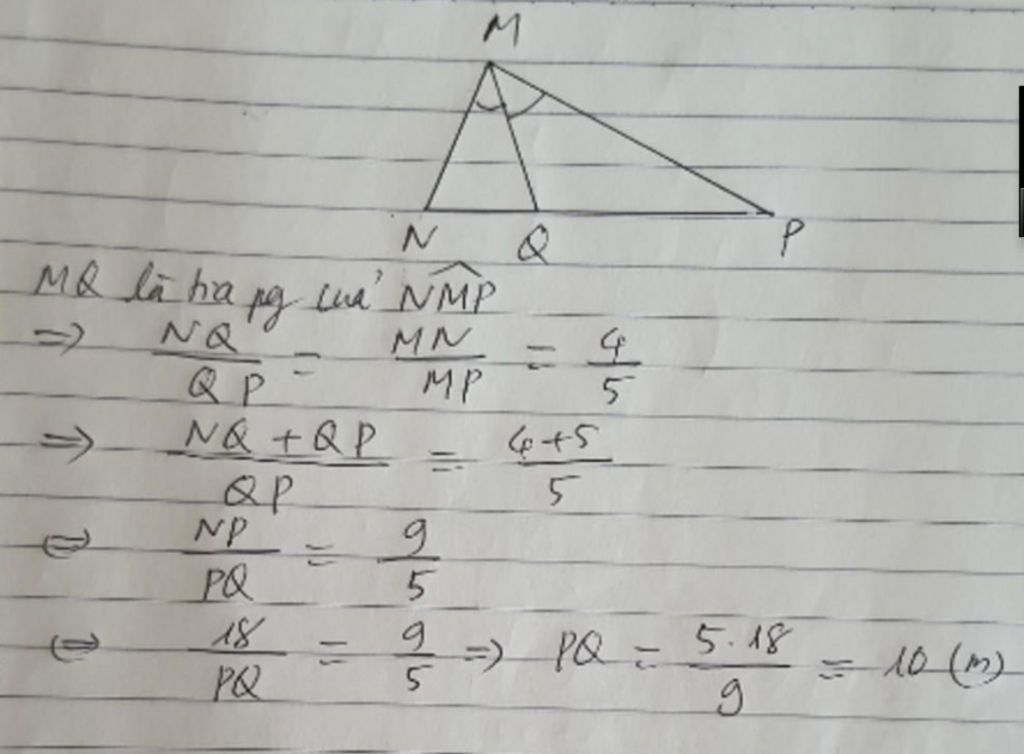 M
N Q P
MQ là tia pg của NMP
=> NQ/QP = MN/MP = 4/5
=> (NQ + QP)/QP = (4+5)/5
<=> NP/PQ = 9/5
<=> 18/PQ = 9/5 => PQ = 5.18/9 = 10 (m)